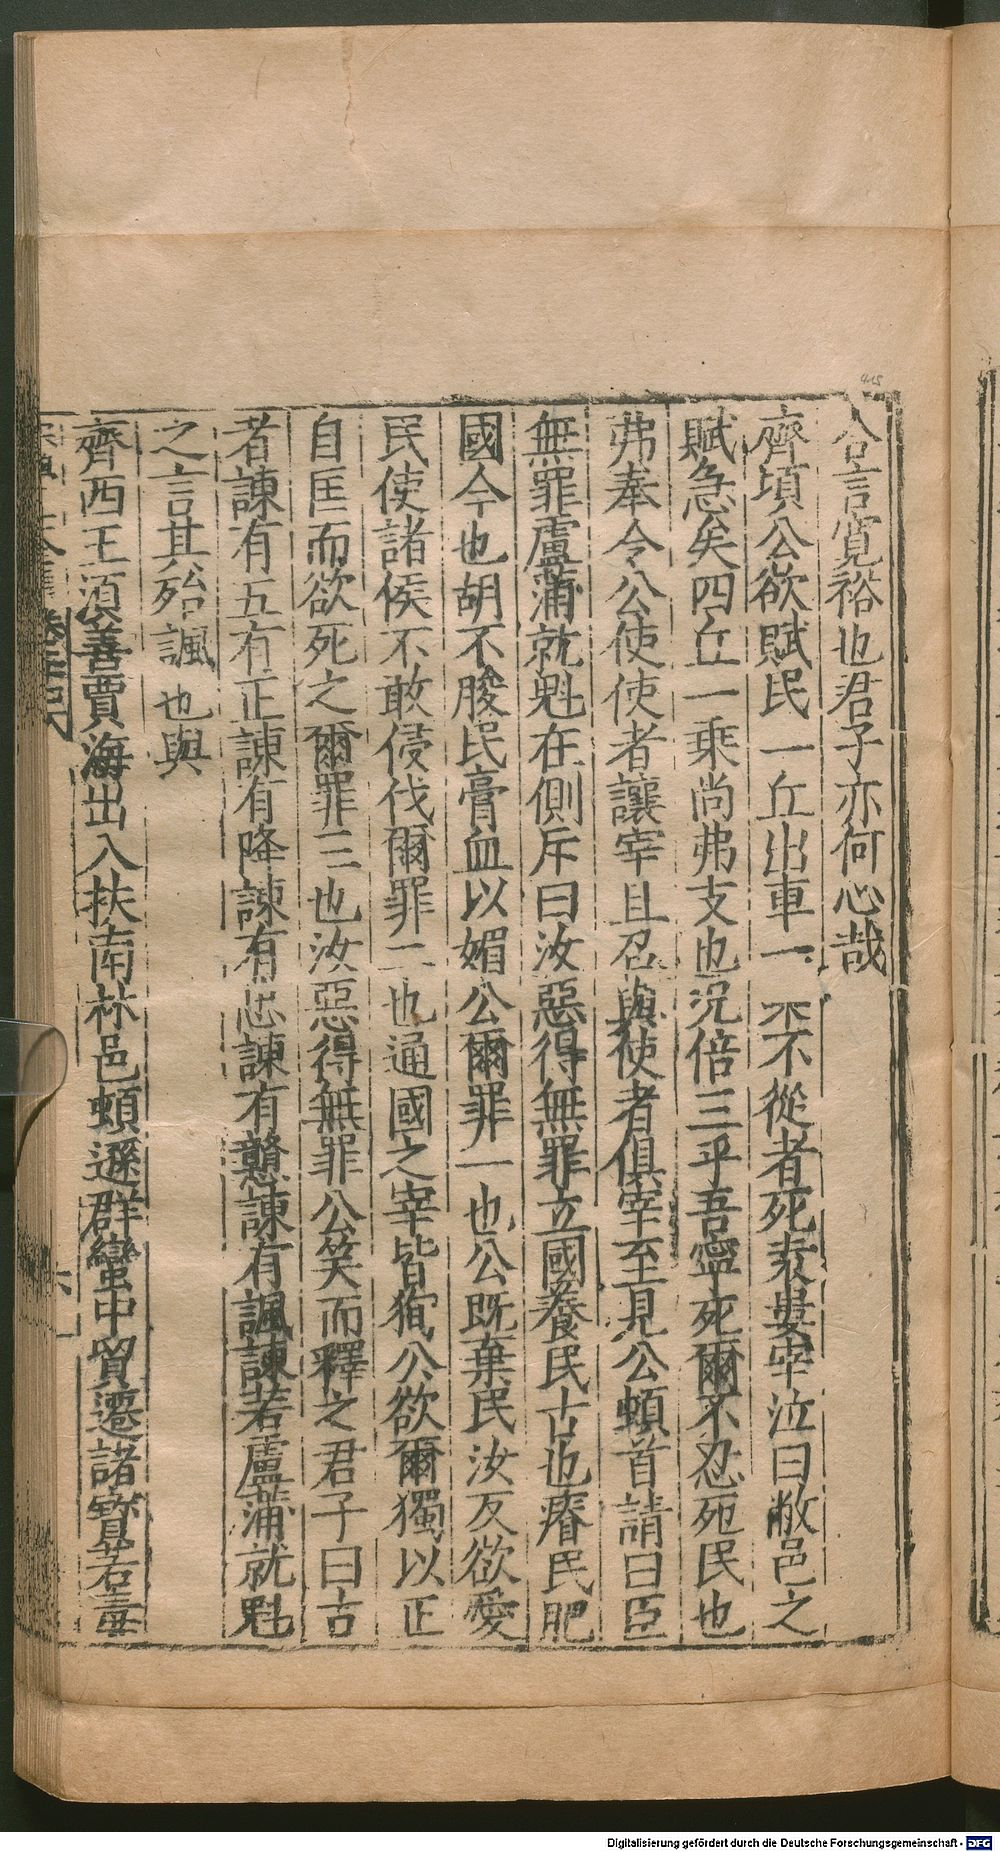 合言寬裕也君子亦何心哉
齊頃公欲賦民一丘出車一 不從者死萊婁宰泣曰敝邑之
賦急矣四丘一乘尚弗支也況倍三乎吾寧死爾不忍死民也
弗奉令公使使者讓宰且召與使者俱宰至見公頓首請曰臣
無罪盧蒲就魁在側斥曰汝惡得無罪立國養民古也瘠民肥
國今也胡不朘民膏血以媚公爾罪一也公既棄民汝反欲愛
民使諸侯不敢侵伐爾罪二也通國之宰皆狥公欲爾獨以正
自匡而欲死之爾罪三也汝惡得無罪公笑而釋之君子曰古
者諫有五有正諫有降諫有忠諫有戇諫有諷諫若盧蒲就魁
之言其殆諷也與
齊西王須善賈海出入扶南林邑頓遜群蠻中貿遷諸寶若毒
415
Digitalisierung gefördert durch die Deutsche Forschungsgemeinschaft - DFG